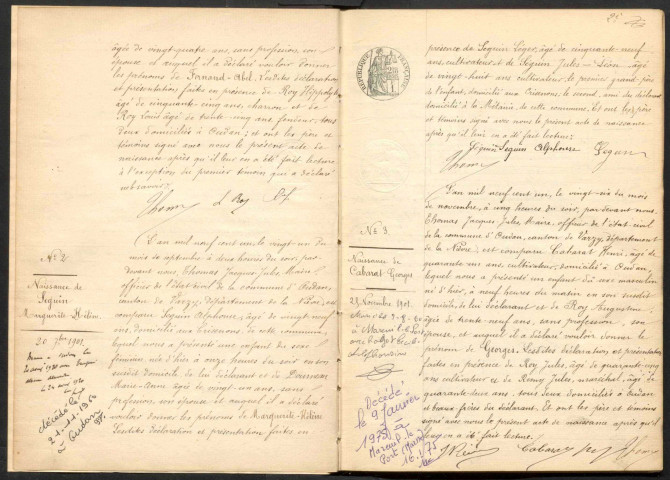 âgée de vingt-quatre ans, sans profession, son
épouse et auquel il a déclaré vouloir donner
les prénoms de Fernand-Abel. Lesdites déclaration
et présentation faites en présence de Roy Hippolyte
âgé de cinquante-cinq ans, charron et de
Roy Louis âgé de trente-cinq ans, tous
deux domiciliés à Oudan; et ont les père et
témoins signé avec nous le présent acte de
naissance après qu'il leur en a été fait lecture
à l'exception du premier témoin qui a déclaré
Thomas L Roy
N° 2
Naissance de
Seguin
Marguerite-Hélène
20 7bre 1901
décédée le
21.11.1960
à Oudan
L'an mil neuf cent un le vingt-un du
mois de septembre à deux heures du soir, par
devant nous, Thomas Jacques Jules Maire
officier de l'état civil de la commune d'Oudan,
canton de Varzy, département de la Nièvre, est
comparu Seguin Alphonse, âgé de vingt-neuf
ans, domicilié aux de cette commune,
lequel nous a présenté une enfant du sexe
féminin née d'hier à onze heures du soir en son
susdit domicile de lui déclarant et de
Marie-Anne âgée de vingt-un ans, sans
profession, son épouse et auquel il a déclaré
vouloir donner les prénoms de Marguerite-Hélène
Lesdites déclaration et présentation faites en
25
RÉPUBLIQUE FRANÇAISE
présence de Seguin Léger, âgé de cinquante-neuf
ans, cultivateur et de Seguin Jules-Léon âgé
de vingt-huit ans cultivateur, le premier grand-père
de l'enfant, domicilié aux le second, ami du déclarant
domicilié à la de cette commune. Et ont les père
et témoins signé avec nous le présent acte de naissance
après qu'il leur en a été fait lecture.
Seguin Seguin Alphonse Seguin
Thomas
N° 3
Naissance de
Cabarat Georges
23 Novembre 1901
décédé
le 9 Janvier
1975
à
Mareuil-le-
Port (Marne)
16.1.75
L'an mil neuf cent un, le vingt-six du mois
de novembre, à cinq heures du soir, par devant nous,
Thomas Jacques Jules Maire, officier de l'état civil
de la commune d'Oudan, canton de Varzy, département
de la Nièvre, est comparu Cabarat Henri, âgé de
quarante-un ans, cultivateur, domicilié à Oudan,
lequel nous a présenté un enfant du sexe masculin
né d'hier, à neuf heures du matin en son susdit
domicile de lui déclarant et de Roy Augustine,
âgée de trente-neuf ans, sans profession, son
épouse, et auquel il a déclaré vouloir donner le
prénom de Georges. Lesdites déclaration et présentation
faites en présence de Roy Jules, âgé de quarante-cinq
ans cultivateur et de Remy Jules, maréchal, âgé de
quarante-deux ans, tous deux domiciliés à Oudan
et beaux frères du déclarant. Et ont les père et témoins
signé avec nous le présent acte de naissance après qu'il
leur en a été fait lecture.
Cabarat Roy Thomas